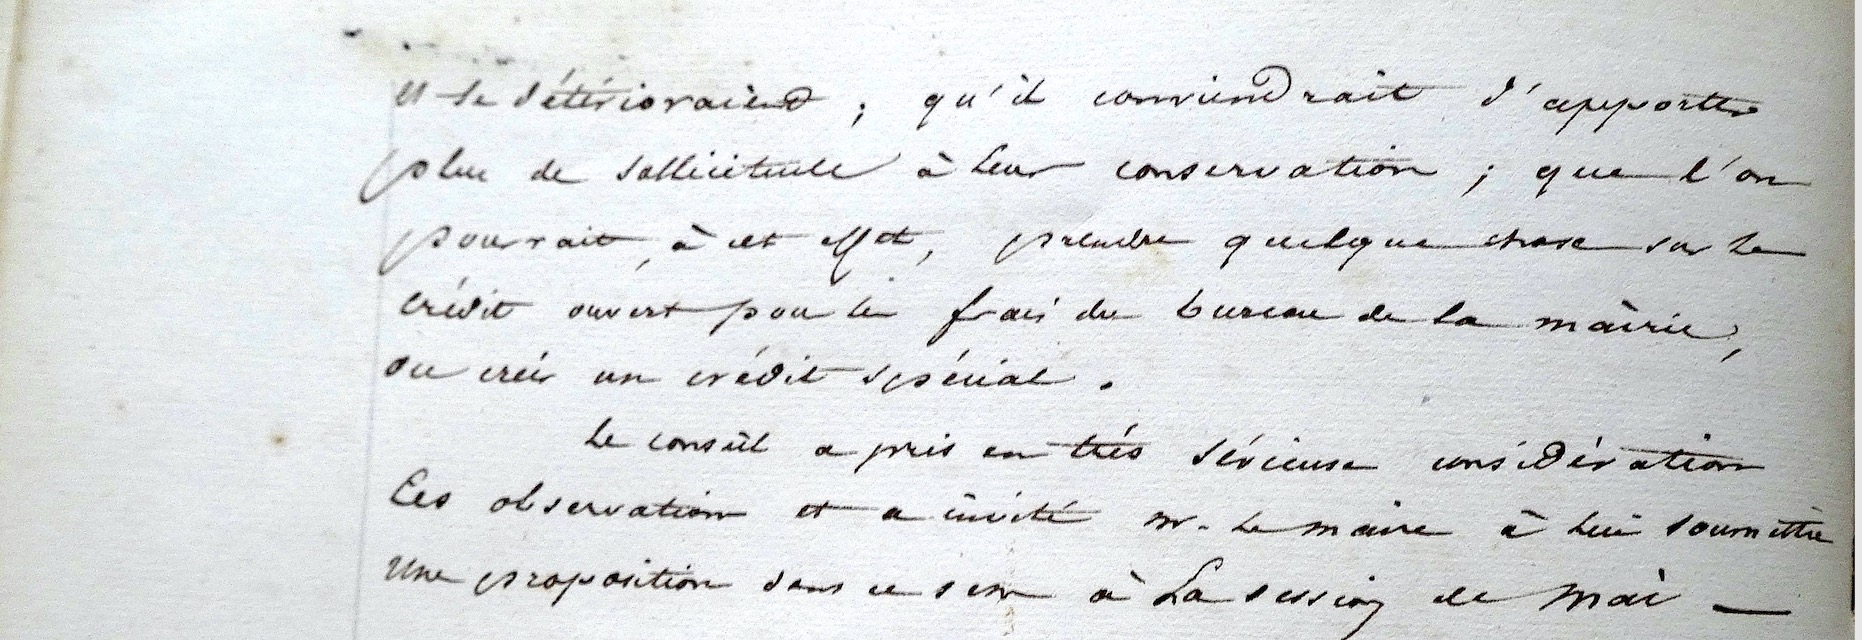 et se détérioraient ; qu'il conviendrait d'apporter
plus de sollicitude à leur conservation ; que l'on
pourrait, à cet effet, prendre quelque chose sur le
crédit ouvert pour les frais du bureau de la mairie,
ou créer un crédit spécial.
Le conseil a pris en très sérieuse considération
Ces observation et a invité M. le maire à lui soumettre
Une proposition dans ce sens à La session de Mai —